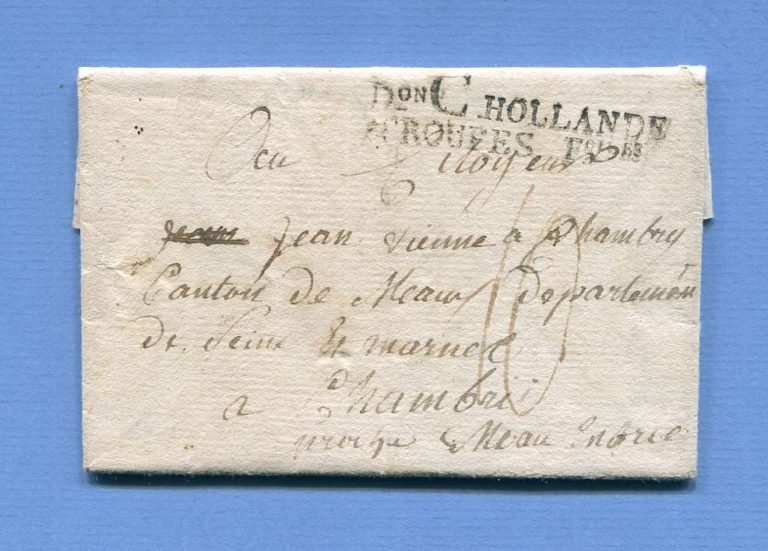 Don C. HOLLANDE
TROUPES Fses
au Citoyen
Jean Vienne a Chambry
Canton de Meaux departemen
de Seine & marne
a Chambri
proche Meau
10